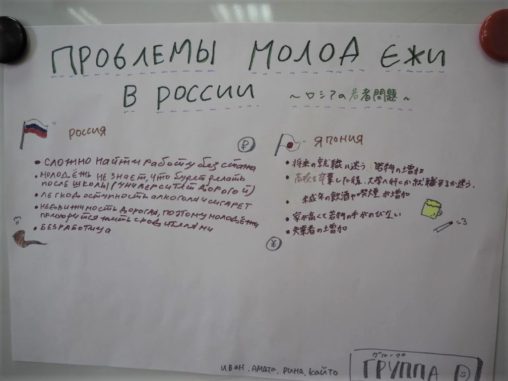 ПРОБЛЕМЫ МОЛОДЕЖИ
В РОССИИ
~ロシアの若者問題~
РОССИЯ
• СЛОЖНО НАЙТИ РАБОТУ БЕЗ СТАЖА
• МОЛОДЕЖЬ НЕ ЗНАЕТ, ЧТО БУДЕТ ДЕЛАТЬ
ПОСЛЕ ШКОЛЫ (УНИВЕРСИТЕТ ДОРОГОЙ)
• ЛЕГКОДОСТУПНОСТЬ АЛКОГОЛЯ И СИГАРЕТ
• НЕДВИЖИМОСТЬ ДОРОГАЯ, ПОЭТОМУ МОЛОДЕЖЬ
ЖИТЬ С РОДИТЕЛЯМИ
• БЕЗРАБОТИЦА
₽
ЯПОНИЯ
• 将来の就職に迷う 若者の増加
• 高校を卒業した後、大学へ行くか就職するか迷う。
• 未成年の飲酒や喫煙が増加
• 家が高くて若者の手がのびない
• 失業者の増加
¥
ИВАН, РИНА, КАЙТО
グループ
ГРУППА